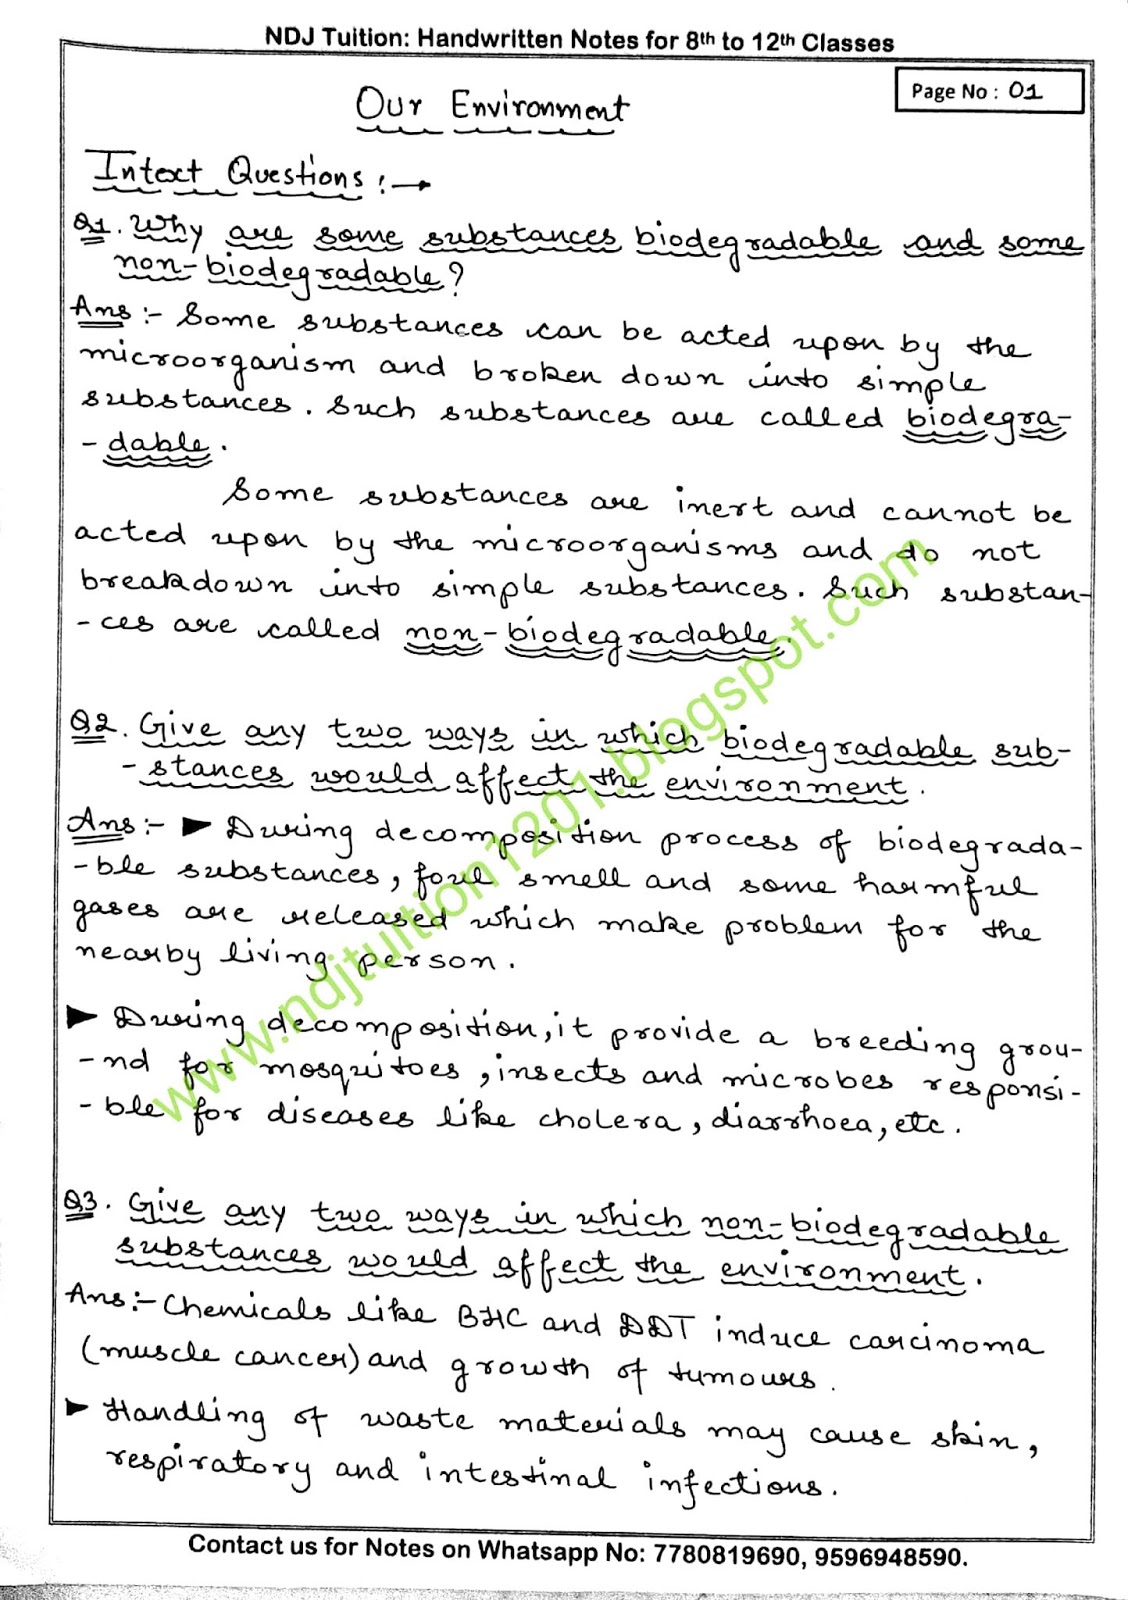 NDJ Tuition: Handwritten Notes for 8th to 12th Classes
Page No : 01
Our Environment
Intext Questions :→
Q1. Why are some substances biodegradable and some
non-biodegradable?
Ans :- Some substances can be acted upon by the
microorganism and broken down into simple
substances. Such substances are called biodegra-
- dable.
Some substances are inert and cannot be
acted upon by the microorganisms and do not
breakdown into simple substances. Such substan-
-ces are called non-biodegradable.
Q2. Give any two ways in which biodegradable sub-
-stances would affect the environment.
Ans :- ► During decomposition process of biodegrada-
-ble substances, foul smell and some harmful
gases are released which make problem for the
nearby living person.
► During decomposition, it provide a breeding grou-
-nd for mosquitoes, insects and microbes responsi-
-ble for diseases like cholera, diarrhoea, etc.
Q3. Give any two ways in which non-biodegradable
substances would affect the environment.
Ans :- Chemicals like BHC and DDT induce carcinoma
(muscle cancer) and growth of tumours.
► Handling of waste materials may cause skin,
respiratory and intestinal infections.
www.ndjtuition1201.blogspot.com
Contact us for Notes on Whatsapp No: 7780819690, 9596948590.